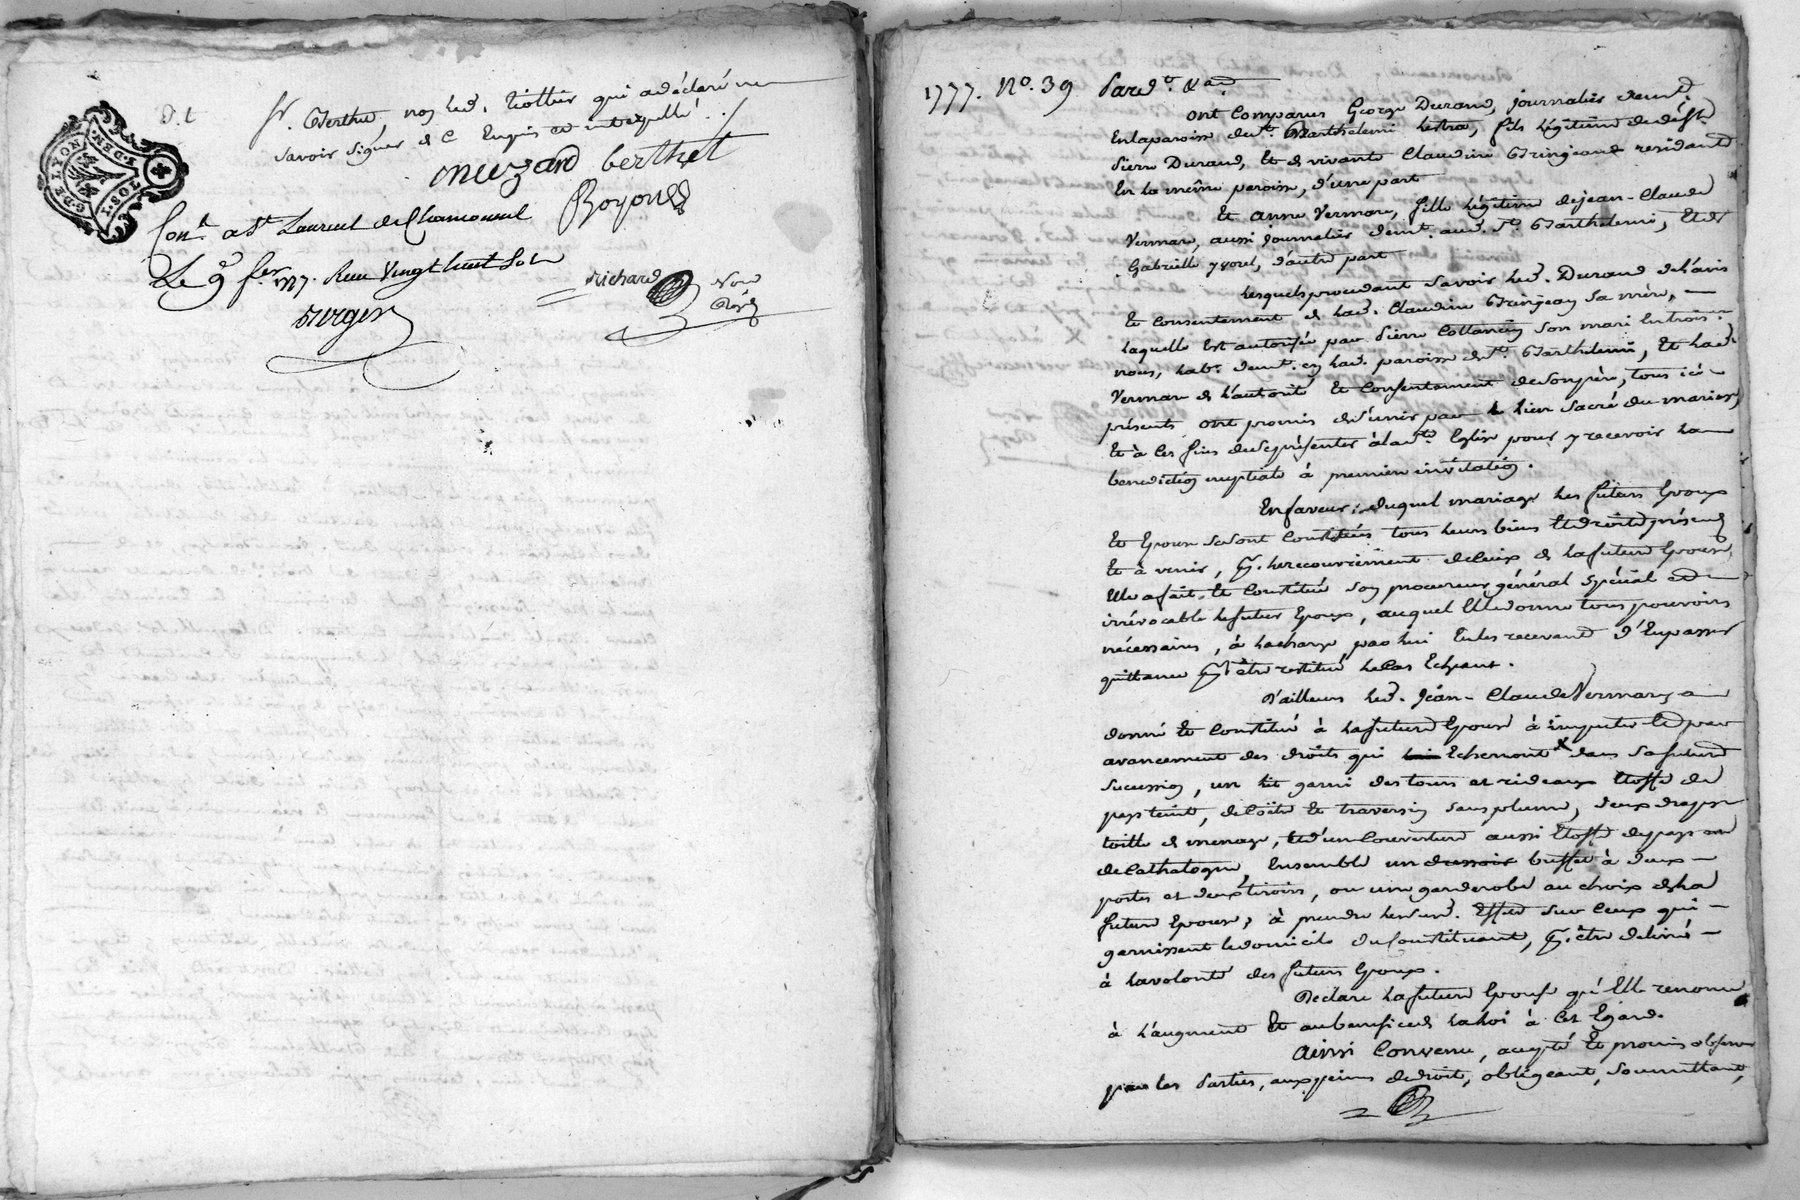 G. DE LYON
2. DEN.
1. SOL
D. L
Sr. Berthet, non led. Tiollier qui a déclaré ne
savoir signer de ce Enquis et interpellé ./.
muzard berthet
Royon
Con.lé à St Laurent de Chamousset
Le 9 fer. 1777. Reçu Vingt huit Sols
Richard Nore Roy.
1777. N°. 39 Pard.t &a.
ont Comparus George Durand, journalier demt.
En la paroisse de St. Barthelemi Lestra, fils légitime de déft
Pierre Durand, Et de vivante Claudine Gringeand residante
En la même paroisse, d'une part
Et Anne Vermare, fille légitime de jean-Claude
Vermare, aussi journalier demt. aud. St. Barthelemi, Et de
Gabrielle yvorel, d'autre part
Lesquels procedant savoir led. Durand de l'avis
Et Consentement de lad. Claudine Gringean sa mère, —
laquelle Est autorisée par Pierre Collancin son mari En troisi.
noces, habt. demt. en lad. paroisse de St. Barthelemi, Et lad.
Vermare de l'autorité Et Consentement de son père, tous ici
présents ont promis de s'unir par le lien Sacré du mariage,
Et à Ces fins de se présenter à la ste. Eglise pour y recevoir la
benediction nuptiale à premiere invitation.
En faveur duquel mariage les futurs Epoux
Et Epouse se sont Constitués tous leurs biens Et droits présens
Et à venir, pr. le recouvrement de Ceux de la future Epouse,
Elle a fait Et Constitué son procureur général spécial et
irrévocable le futur Epoux, auquel Elle donne tous pouvoirs
nécessaires, à la charge par lui En les recevant d'En passer
quittance pr. Etre restitué le Cas Echeant.
D'ailleurs led. Jean-Claude Vermare a
donné Et Constitué à la future Epouse à imputer Et par
avancement des droits qui Echerront dans sa future
Sucession, un lit garni des tours et rideaux Etoffe de
pays teint, de Coëtre Et traversin sans plume, deux draps
toille de menage, Et d'un Couverture aussi Etoffe de pays ou
de Cathalogne, Ensemble un dressoir buffet à deux —
portes et deux tiroirs, ou une garderobe au choix de la
future Epouse, à prendre lesd. Effets sur Ceux qui —
garnissent le domicile du Constituant, pr. être delivré —
à la volonté des futurs Epoux.
Déclare la future Epouse qu'Elle renonce
à l'augment Et au benefice de la loi à Cet Egard.
Ainsi Convenu, accepté Et promis observer
par les Parties, aux peines de droit, obligeant, soumettant,